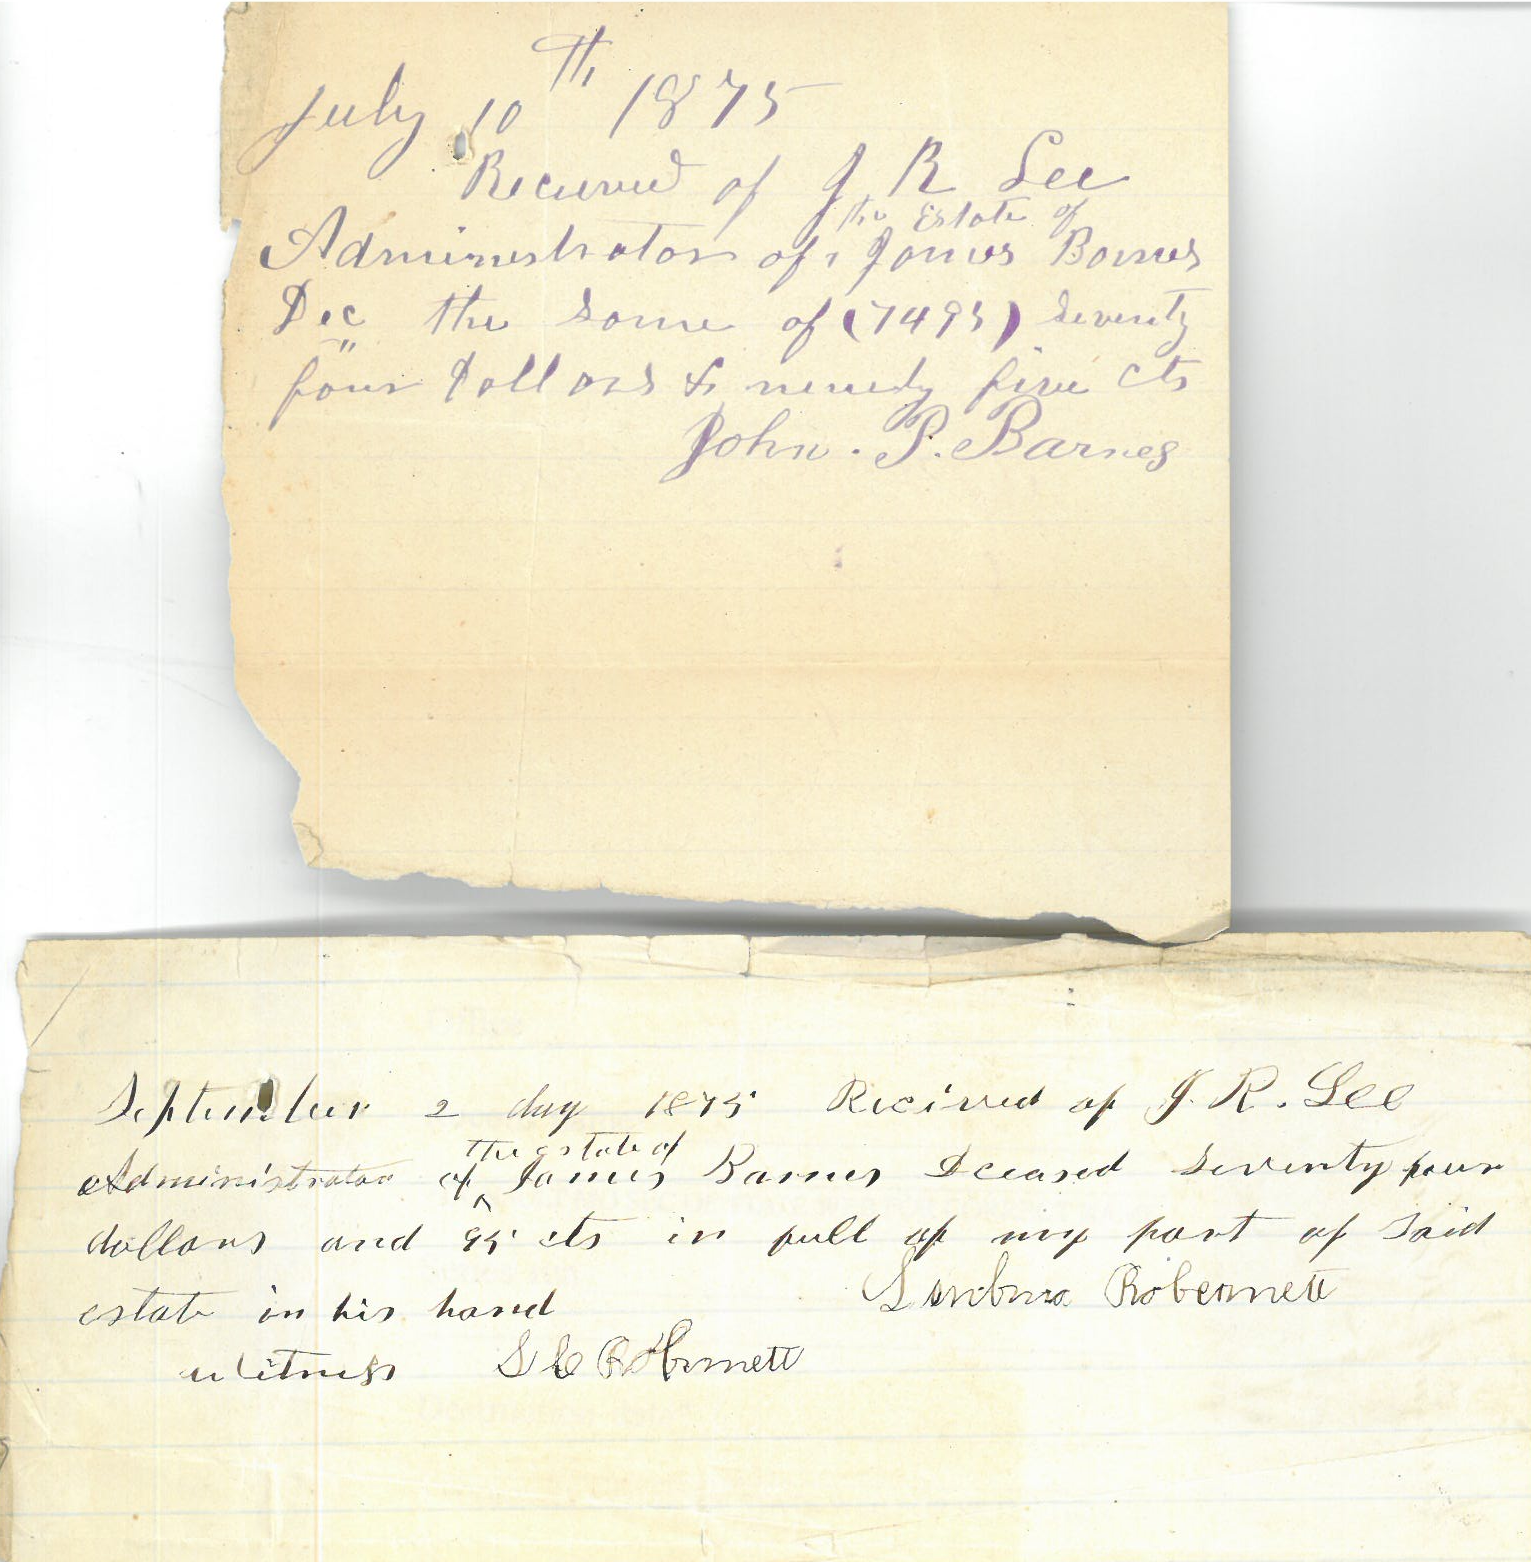 July 10th 1875
Received of J R Lee
the Estate of
Administrator of James Barnes
Dec the some of (7495) seventy
four Dollars & ninety five cts
John. P. Barnes
September 2 day 1875 Received of J. R. Lee
the estate of
Administrator of ^ James Barnes Dceased seventy four
dollars and 95 cts in full of my part of said
estate in his hand
Robernett
witness S C Robernett